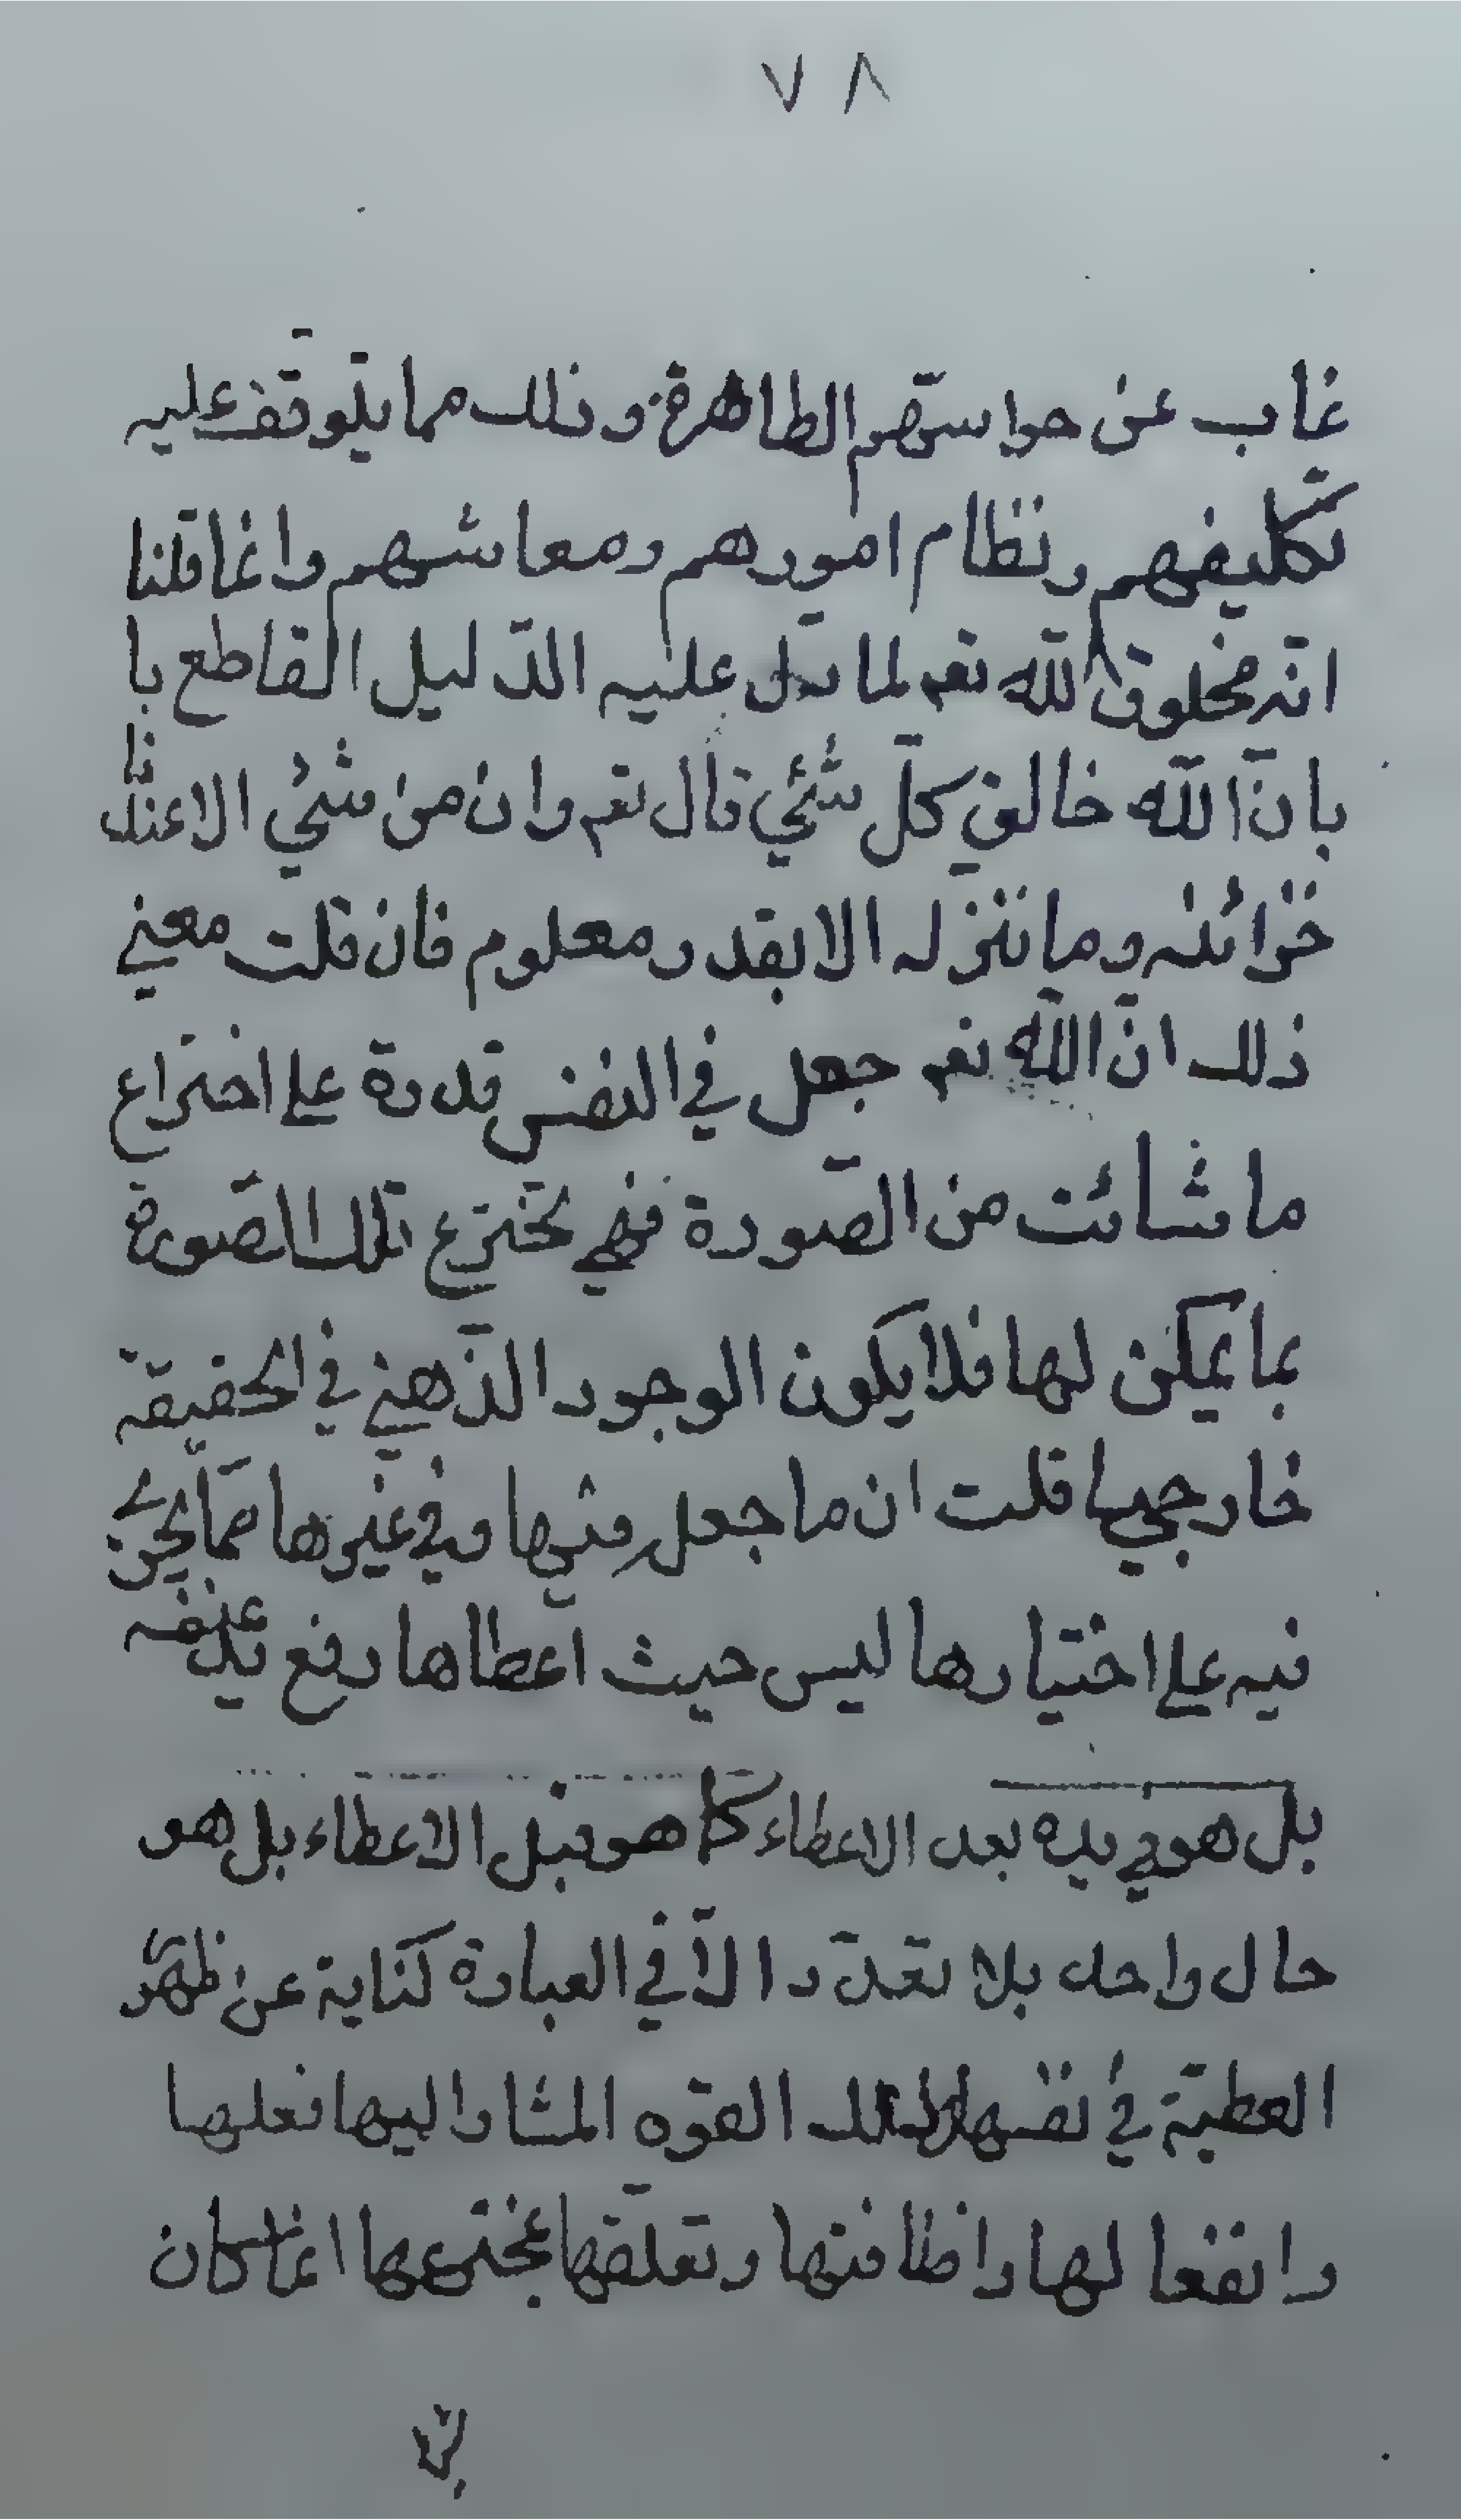 ٧٨
غاب عن حواسهم الظاهرة وذلك مما يتوقف عليه
تكليفهم ونظام امورهم ومعاشهم وانما قلنا
انه مخلوق لله تعم لما دل عليه الدّليل القاطع با
بانّ اللّه خالق كلّ شئي قال تعم وان من شئي الا عندنا
خزائنه وما ننزله الا بقدر معلوم فان قلت معني
ذلك انّ اللّه تعم جعل في النفس قدرة علي اختراع
ما شائت من الصّورة فهي تخترع تلك الصّورة
بما يمكن لها فلا يكون الوجود الذّهني في الحقيقة
خارجيا قلت ان ما جعل فيها وفي غيرها ممّا يجري
فيه علي اختيارها ليس حيث اعطاها رفع يده عنه
بل هو في يده بعد الاعطاء كما هو قبل الاعطاء بل هو
حال واحد بلا تعدّد الّا في العبارة كناية عن ظهور
العطيّة في نفسها تلك القوّه المشار اليها فعلها
وانفعالها واضافتها وتعلّقها بمخترعها انما كان